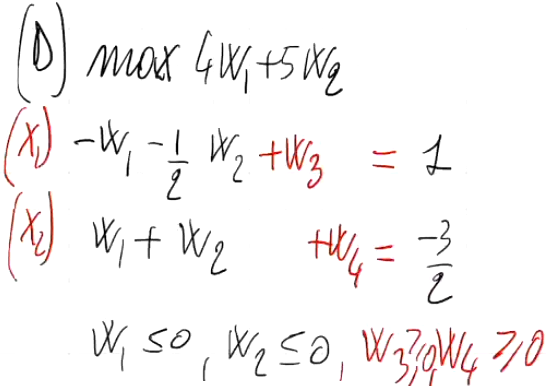 (D) max 4W₁+5W₂
(X₁) -W₁ - 1/2 W₂ +W₃ = 1
(X₂) W₁ + W₂ +W₄ = -3/2
W₁ ≤0, W₂ ≤0, W₃≥0, W₄ ≥0